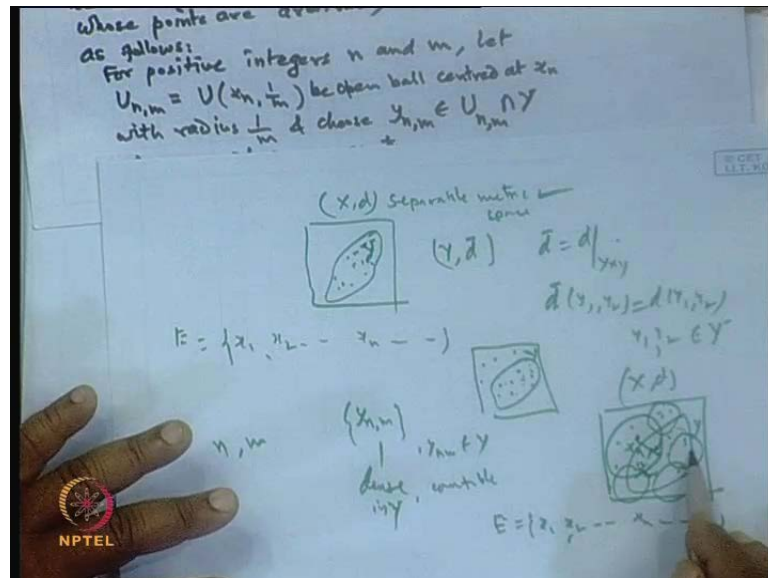 whose points are
as follows:
For positive integers n and m, let
U_{n,m} = U(x_n, 1/m) be open ball centred at x_n
with radius 1/m & choose y_{n,m} ∈ U_{n,m} ∩ Y
© CET
I.I.T. KG
(X,d) separable metric
space
Y
(Y, d̄) d̄ = d|_{Y×Y}
d̄(y_1, y_2) = d(y_1, y_2)
y_1, y_2 ∈ Y
E = {x_1, x_2 -- x_n -- -}
(X,d)
n, m {y_{n,m}}, y_{nm} ∈ Y
dense, countable
in Y
E = {x_1, x_2 -- x_n --
NPTEL